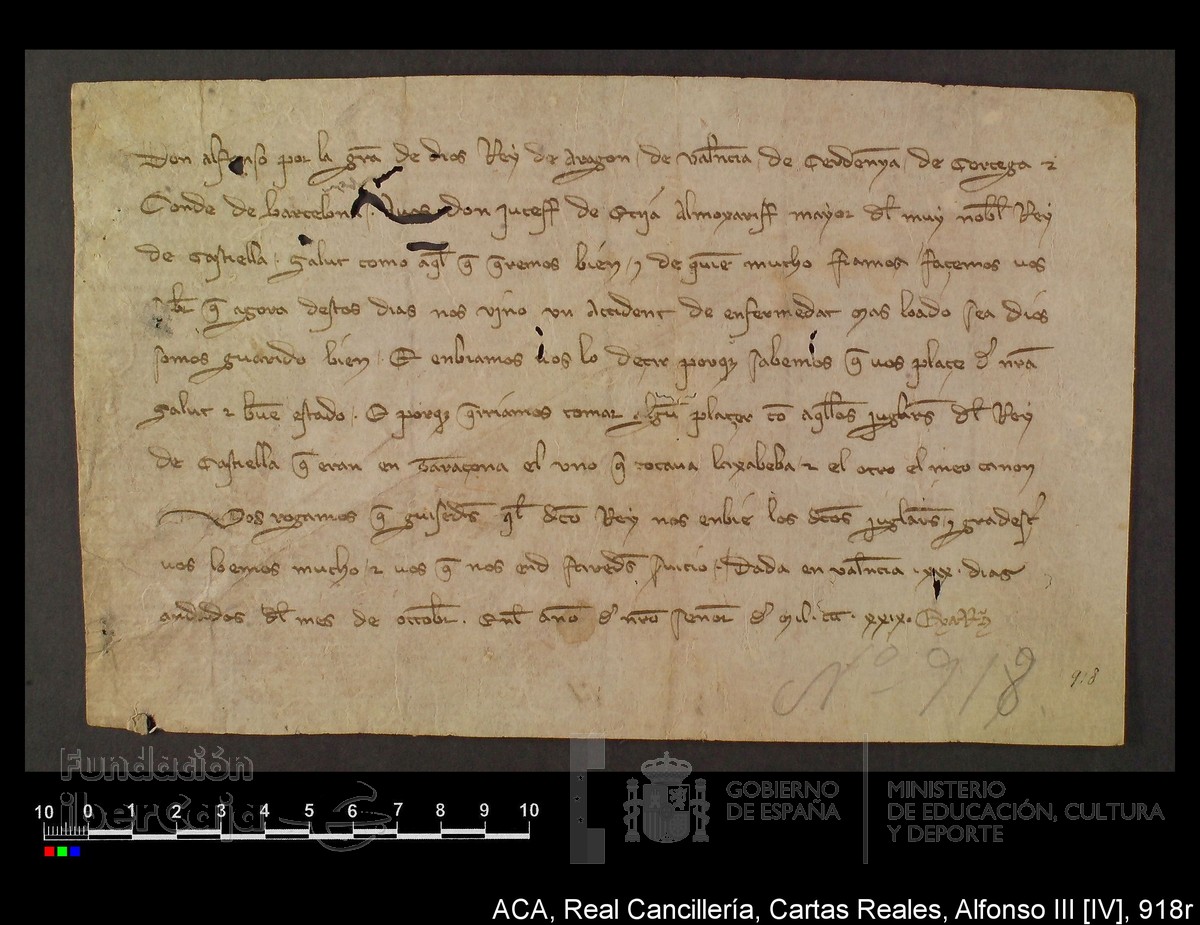 Don alfonso por la gra de dios Rey de Aragon, de Valencia, de Cerdenya, de Corcega &
Conde de barcelona. A vos don juceff de Ecija Almoxariff mayor dl muy nobl Rey
de Castiella. Salut como aql q qremos bien, & de quie mucho fiamos, facemos vos
q agora destos dias nos vino un accident de enfermedat mas loado sea dios
somos guarido bien. E enbiamos vos lo decir porq sabemos q vos place d nra
Salut & bue estado. E porq qrriamos tomar algu plazer co aqllos juglars dl Rey
de Castiella q eran en Taraçona el uno q tocava la xabeba & el otro el meo canon
Vos rogamos q guiseds ql dco Rey nos enbie los dcos juglars & gradesc
vos loemos mucho & vos q nos end fareds svicio. Dada en valencia .xix. dias
andados dl mes de octobr. Enl año d nro señor d mil. ccc. xxix.
Nº 918
918
Fundación
ibercaja
10 0 1 2 3 4 5 6 7 8 9 10
GOBIERNO
DE ESPAÑA
MINISTERIO
DE EDUCACIÓN, CULTURA
Y DEPORTE
ACA, Real Cancillería, Cartas Reales, Alfonso III [IV], 918r